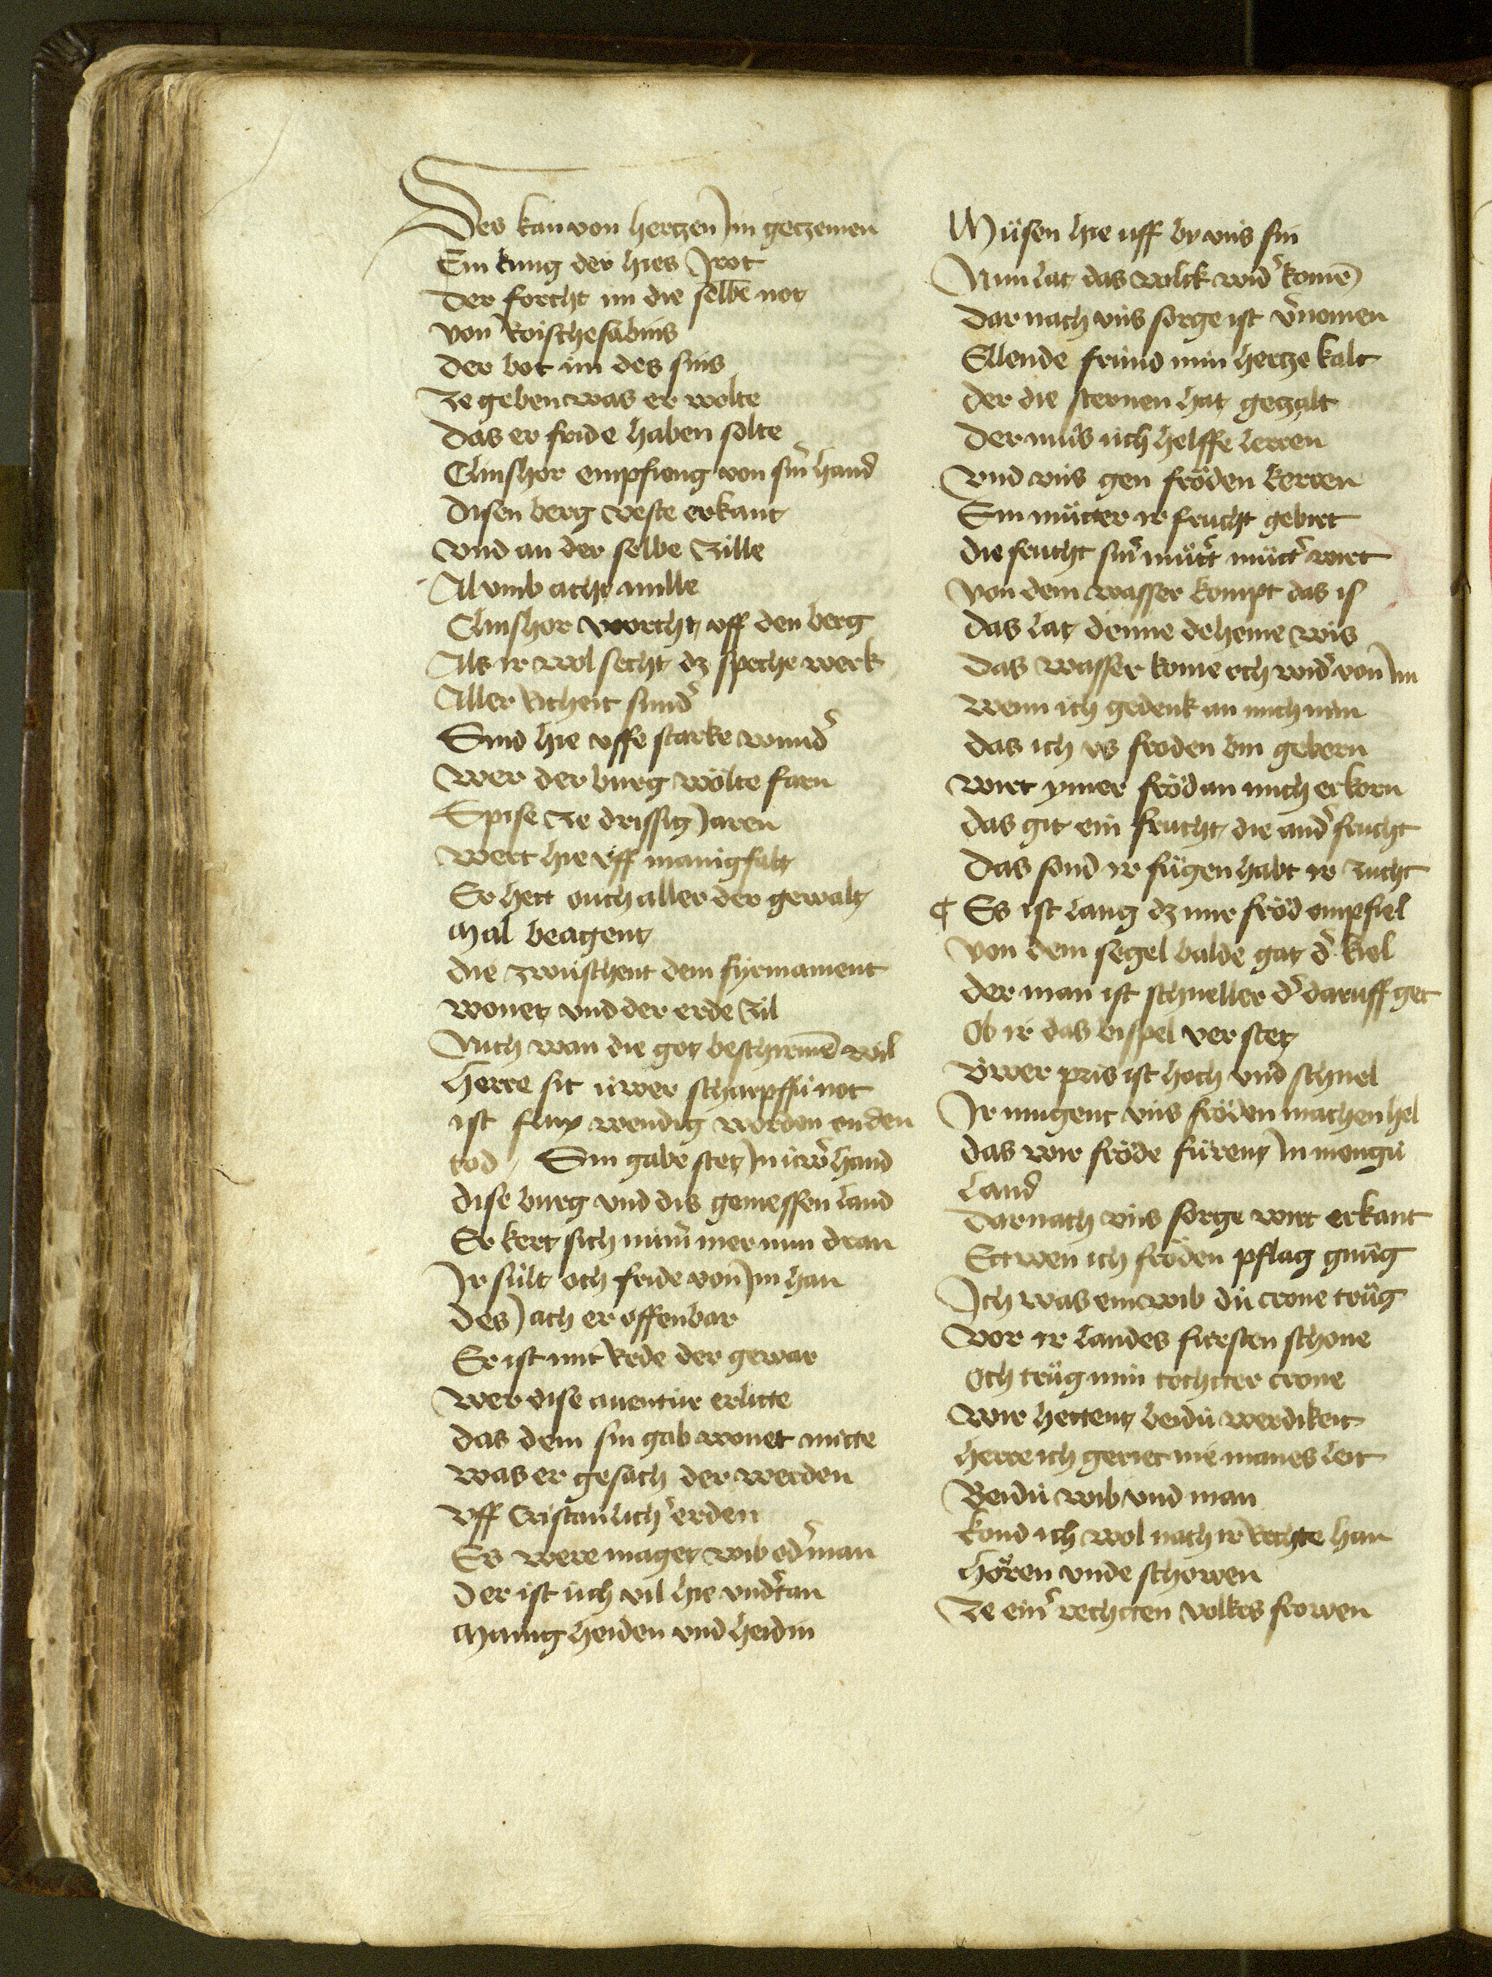 Des kan von hertzen Jm getzemen
Ein kung der hies Jrot
Der forcht im die selbē not
von Roischesabins
Der bot im des sins
Ze geben was er wolte
Das er fride haben solte
Clinshor empfieng von sinr̄ hand
Disen berg veste erkant
Vnd an der selbe Zille
Al vmb acht mille
Clinshor worcht vff den berg
Als ir wol secht dz speche werk
Aller richeit sundr̄
Sind hie vffe starke wundr̄
Wer der burg wölte farn
Spise Ze drissig Jaren
Wert hie vff manigfalt
Er hett ouch aller der gewalt
Mal beagent
die zwuschent dem fyrmament
Wonet vnd der erde Zil
Nich wan die got beschirmē wil
Herre sit üwer scharpffü not
ist flux wendig worden on den
tod / Sin gabe stet Jn üwr̄ hand
Dise burg vnd dis gemessen land
Er kert sich nimr̄ mer nun dran
Jr sült och fride von Jm han
des Jach er offenbar
Er ist mit Rede der gewar
Wer dise auentür erlitte
das dem sin gab wonet mitte
Was er gesach der werden
Vff Cristanlich erden
Es were maget wib odr̄ man
Der ist üch vil hie vndr̄tan
Manig heiden vnd heidin
Müsen hie uff by vns sin
Nun lat das volck widr̄ komē
Dar nach vns sorge ist vr̄nomen
Ellende fründ min hertze kalt
der die sternen hat gezalt
Der müs üch helffe leren
Vnd vns gen fröden keren
Ein mütter ir frucht gebirt
die frucht sinr̄ mütr̄ mütr̄ wirt
Von dem wasser kompt das is
das lat denne deheine wis
das wasser kome och widr̄ von Jm
Wenn ich gedenk an mich nun
das ich vs froden bin gebern
wirt ymer fröd an mich erkorn
das git ein frucht die andr̄ frucht
Das sond ir fügen habt ir zucht
¶ Es ist lang dz mir fröd empfiel
Von dem segel balde gat dr̄ kiel
Der man ist schneller dr̄ daruff get
Ob ir das bispel ver stet
Üwer pris ist hoch vnd schnel
Jr mugent vns fröden machen hel
das wir fröde fürent Jn mengü
Land
Darnach vns sorge wirt erkant
Ettwen ich fröden pflag gnüg
Ich was ein wib dü crone trüg
Vor ir landes fürsten schone
Och trüg min tochtter crone
Wir hettent beidü werdikeit
Herre ich geriet nie manes leit
Beidü wib vnd man
Kond ich wol nach ir Rechte han
Hören vnde schowen
Ze einr̄ rechtten volkes frowen